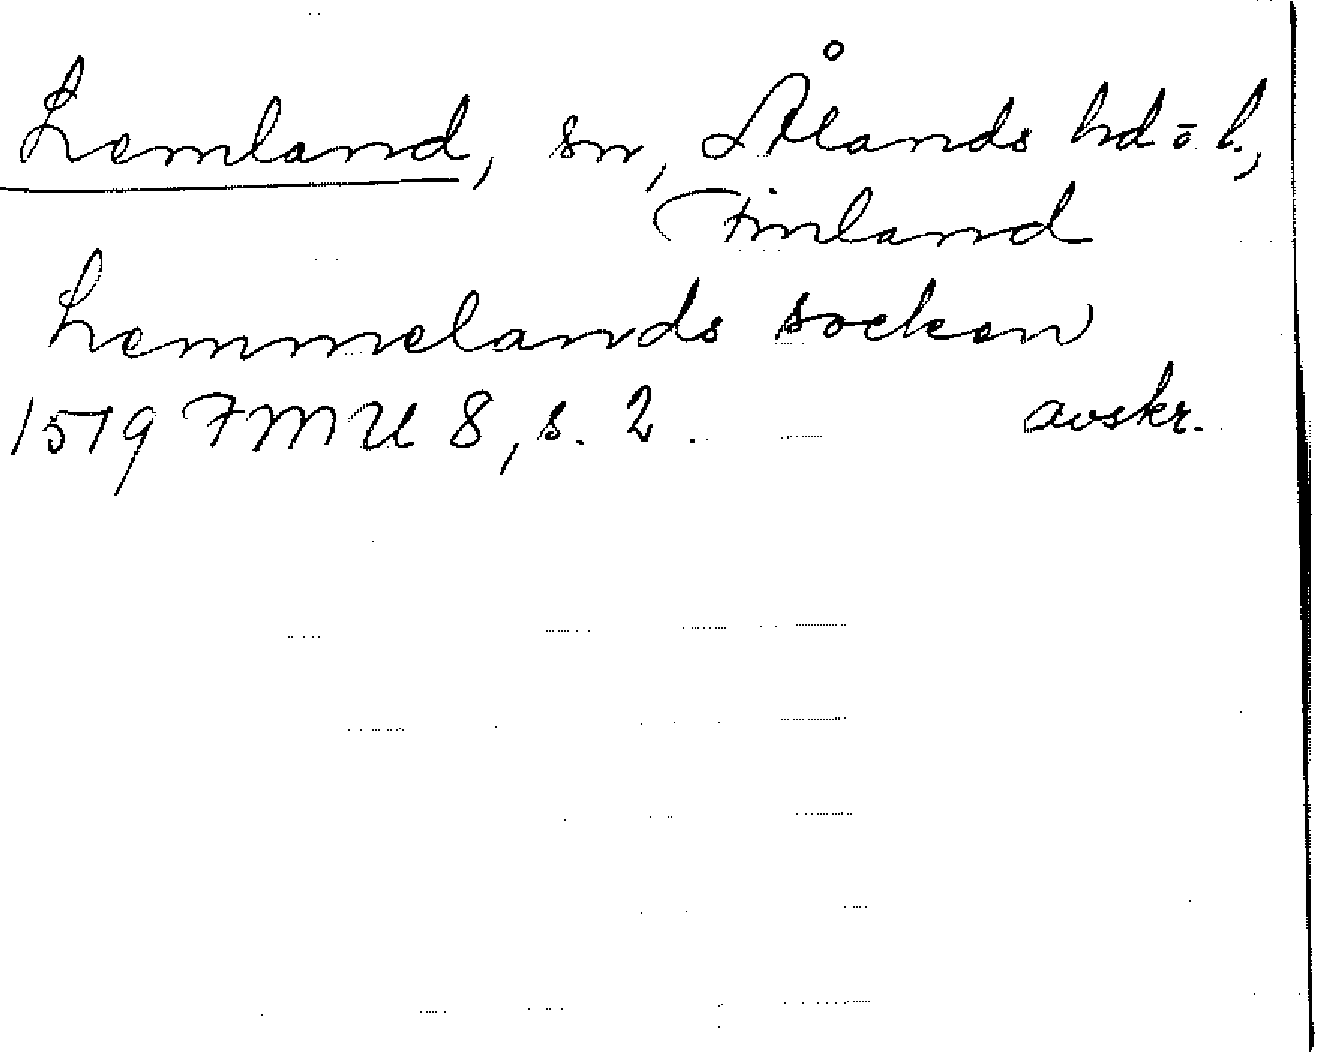 Lemland, sn, Ålands hd o. l.,
Finland
Lemmelands socken
1519 FMU 8, s. 2. avskr.